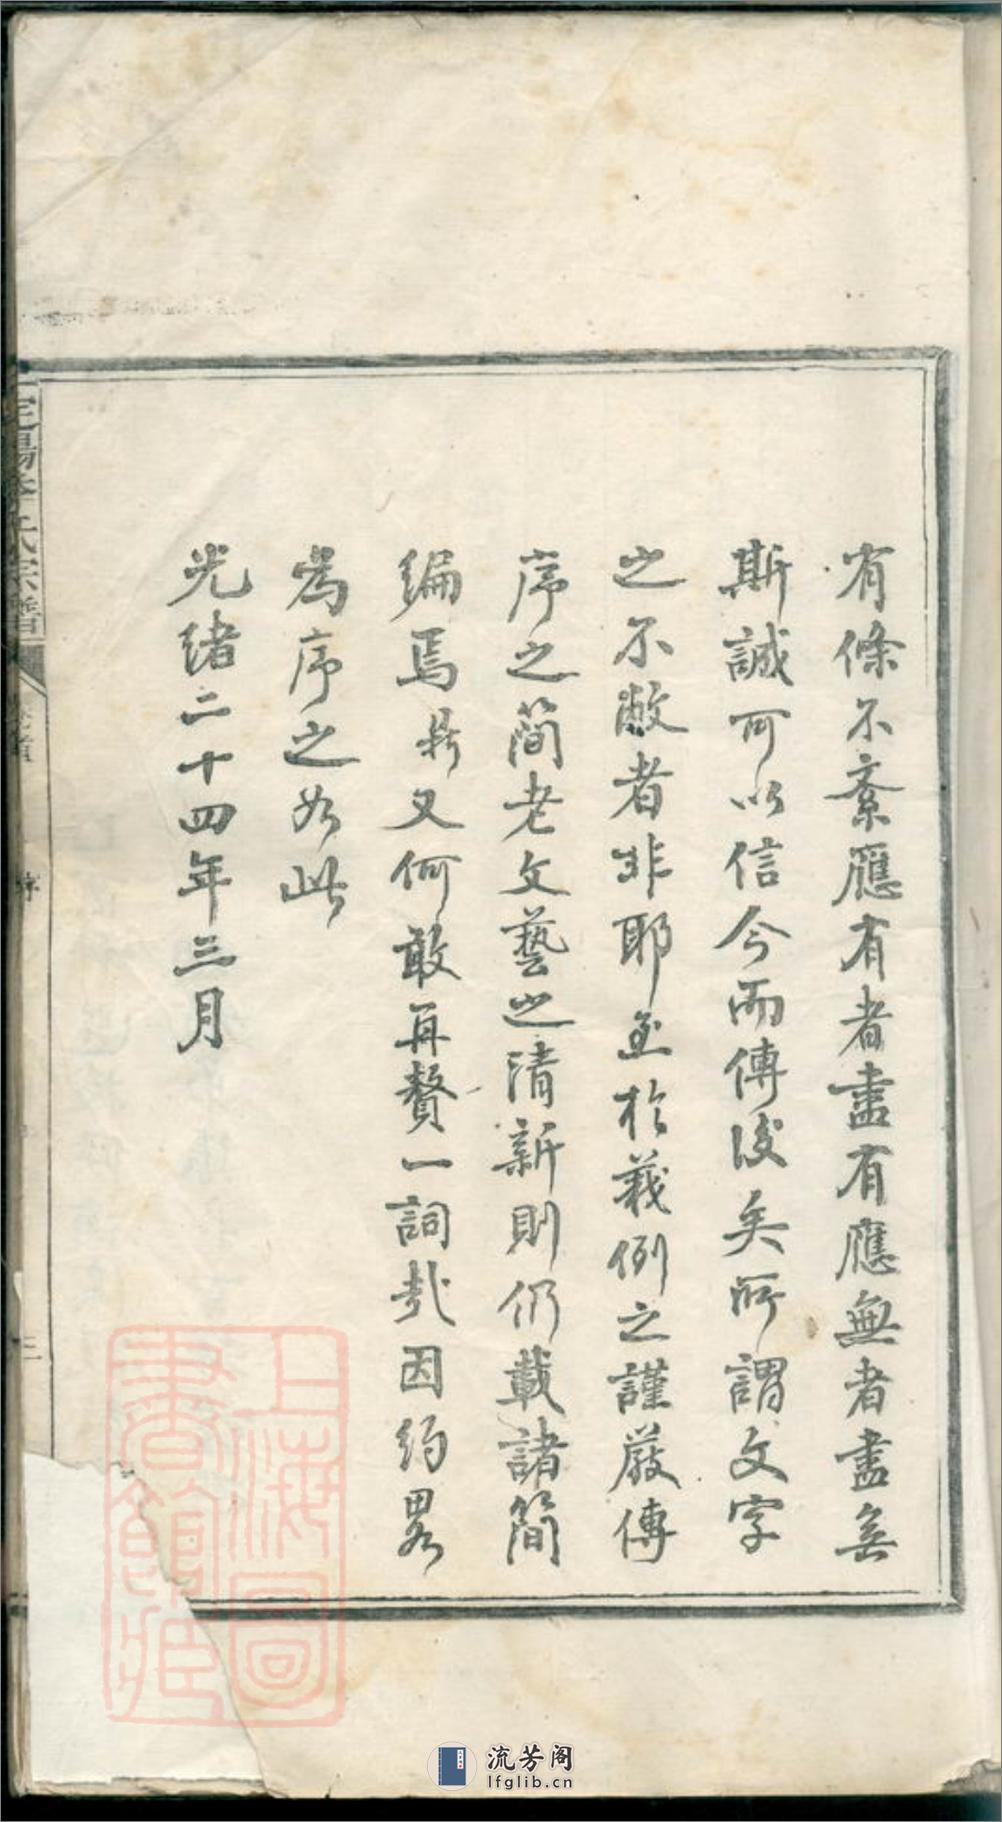 有條不紊應有者盡有應無者盡無
斯誠可以信今而傳後矣所謂文字
之不敝者非耶至於義例之謹嚴傳
序之簡老文藝之清新則仍載諸簡
編焉某又何敢再贅一詞哉因約畧
為序之如此
光緒二十四年三月
陽李氏宗譜
卷首
序
上海圖書館藏
流芳阁
lfglib.cn